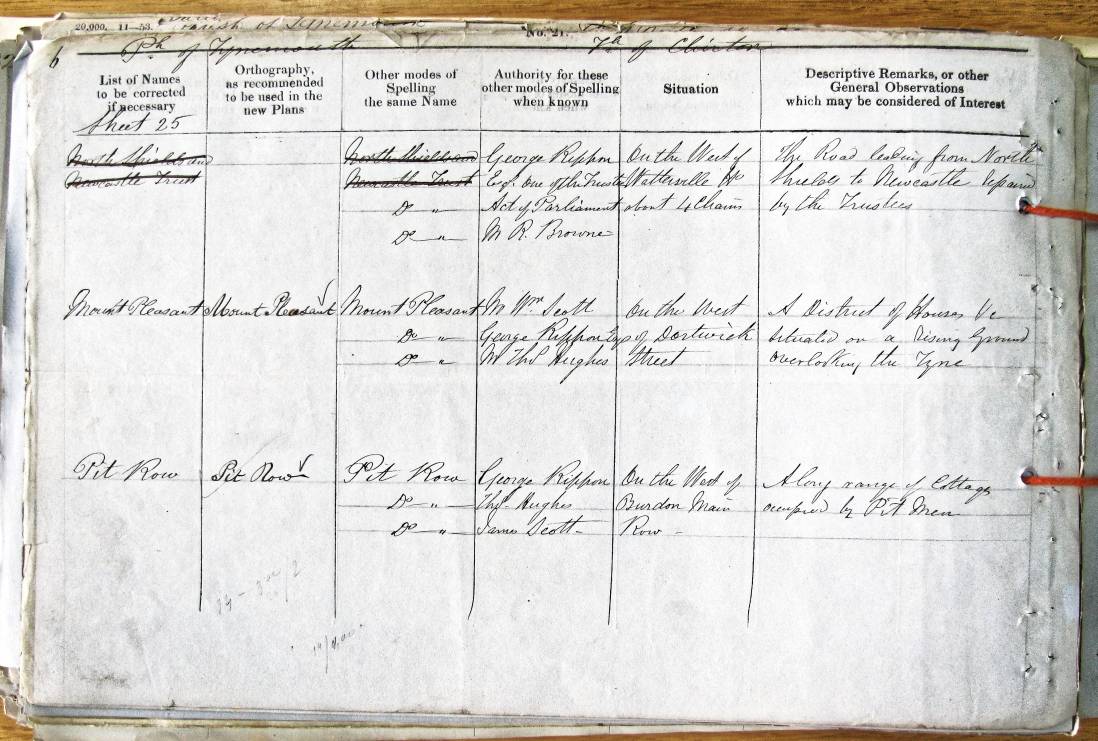 20,000. 11—53. Parish of Tynemouth
No. 21.
6 Ph of Tynemouth Tp of Chirton
List of Names to be corrected if necessary
Orthography, as recommended to be used in the new Plans
Other modes of Spelling the same Name
Authority for these other modes of Spelling when known
Situation
Descriptive Remarks, or other General Observations which may be considered of Interest
Sheet 25
North Shields and North Shields and George Rippon On the West of The Road leading from North
Newcastle Trust Newcastle Trust Esqr. One of the Trustees Waterville Ho Shields to Newcastle repaired
Do " Act of Parliament about 4 Chains by the Trustees
Do " Mr R. Browne
Mount Pleasant Mount Pleasant Mount Pleasant Mr Wm Scott On the West A District of Houses &c
Do " George Rippon Esqr of Dortwick Situated on a Rising Ground
Do " Mr Thos Hughes Street overlooking the Tyne
Pit Row Pit Row Pit Row George Rippon On the West of A long range of Cottages
Do " Thos. Hughes Burdon Main occupied by Pit Men
Do " James Scott Row